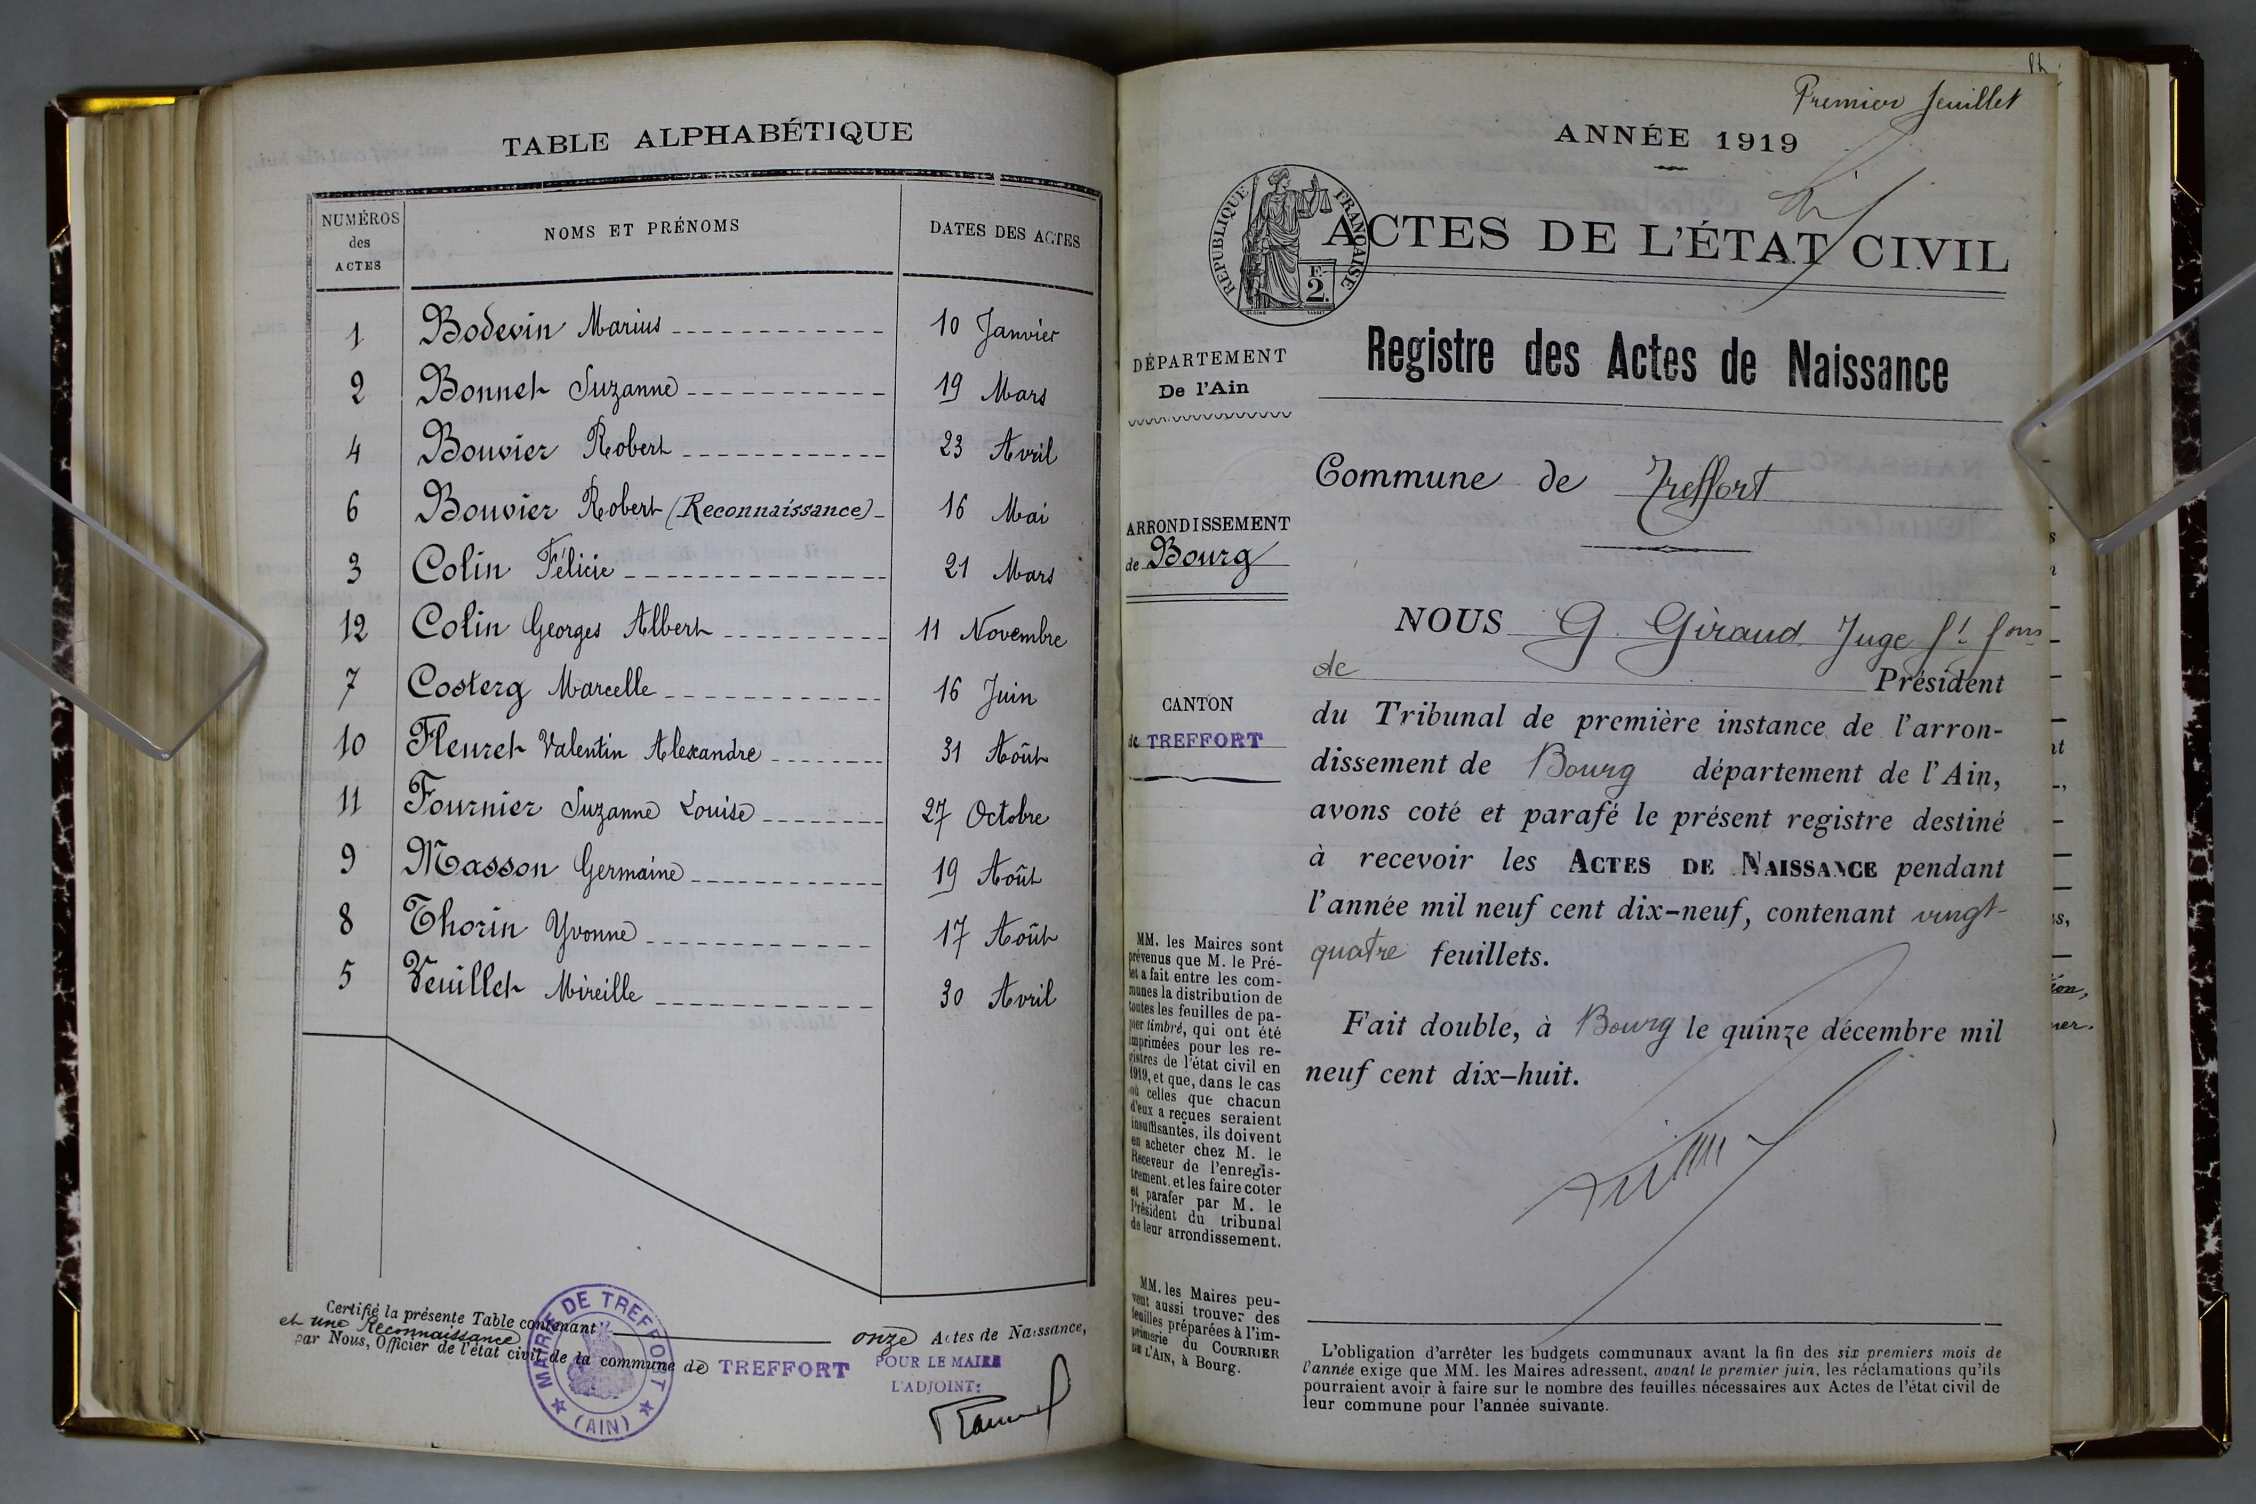 TABLE ALPHABÉTIQUE
NUMÉROS des ACTES NOMS ET PRÉNOMS DATES DES ACTES
1 Bodevin Marius 10 Janvier
2 Bonnet Suzanne 19 Mars
4 Bouvier Robert 23 Avril
6 Bouvier Robert (Reconnaissance) 16 Mai
3 Colin Félicie 21 Mars
12 Colin Georges Albert 11 Novembre
7 Costerg Marcelle 16 Juin
10 Fleuret Valentin Alexandre 31 Août
11 Fournier Suzanne Louise 27 Octobre
9 Masson Germaine 19 Août
8 Thorin Yvonne 17 Août
5 Veuillet Mireille 30 Avril
Certifié la présente Table contenant onze Actes de Naissance,
et une Reconnaissance
par Nous, Officier de l'état civil de la commune de TREFFORT
POUR LE MAIRE
L'ADJOINT:
MAIRIE DE TREFFORT
(AIN)
Premier feuillet
ANNÉE 1919
RÉPUBLIQUE FRANÇAISE
F.
2.
ACTES DE L'ÉTAT CIVIL
Registre des Actes de Naissance
DÉPARTEMENT
De l'Ain
Commune de Treffort
ARRONDISSEMENT
de Bourg
CANTON
de TREFFORT
NOUS G. Giraud Juge
de Président
du Tribunal de première instance de l'arron-
dissement de Bourg département de l'Ain,
avons coté et parafé le présent registre destiné
à recevoir les ACTES DE NAISSANCE pendant
l'année mil neuf cent dix-neuf, contenant vingt-
quatre feuillets.
Fait double, à Bourg le quinze décembre mil
neuf cent dix-huit.
MM. les Maires sont
prévenus que M. le Pré-
fet a fait entre les com-
munes la distribution de
toutes les feuilles de pa-
pier timbré, qui ont été
imprimées pour les re-
gistres de l'état civil en
1919, et que, dans le cas
où celles que chacun
d'eux a reçues seraient
insuffisantes, ils doivent
en acheter chez M. le
Receveur de l'enregis-
trement, et les faire coter
et parafer par M. le
Président du tribunal
de leur arrondissement.
MM. les Maires peu-
vent aussi trouver des
feuilles préparées à l'im-
primerie du COURRIER
DE L'AIN, à Bourg.
L'obligation d'arrêter les budgets communaux avant la fin des six premiers mois de
l'année exige que MM. les Maires adressent, avant le premier juin, les réclamations qu'ils
pourraient avoir à faire sur le nombre des feuilles nécessaires aux Actes de l'état civil de
leur commune pour l'année suivante.